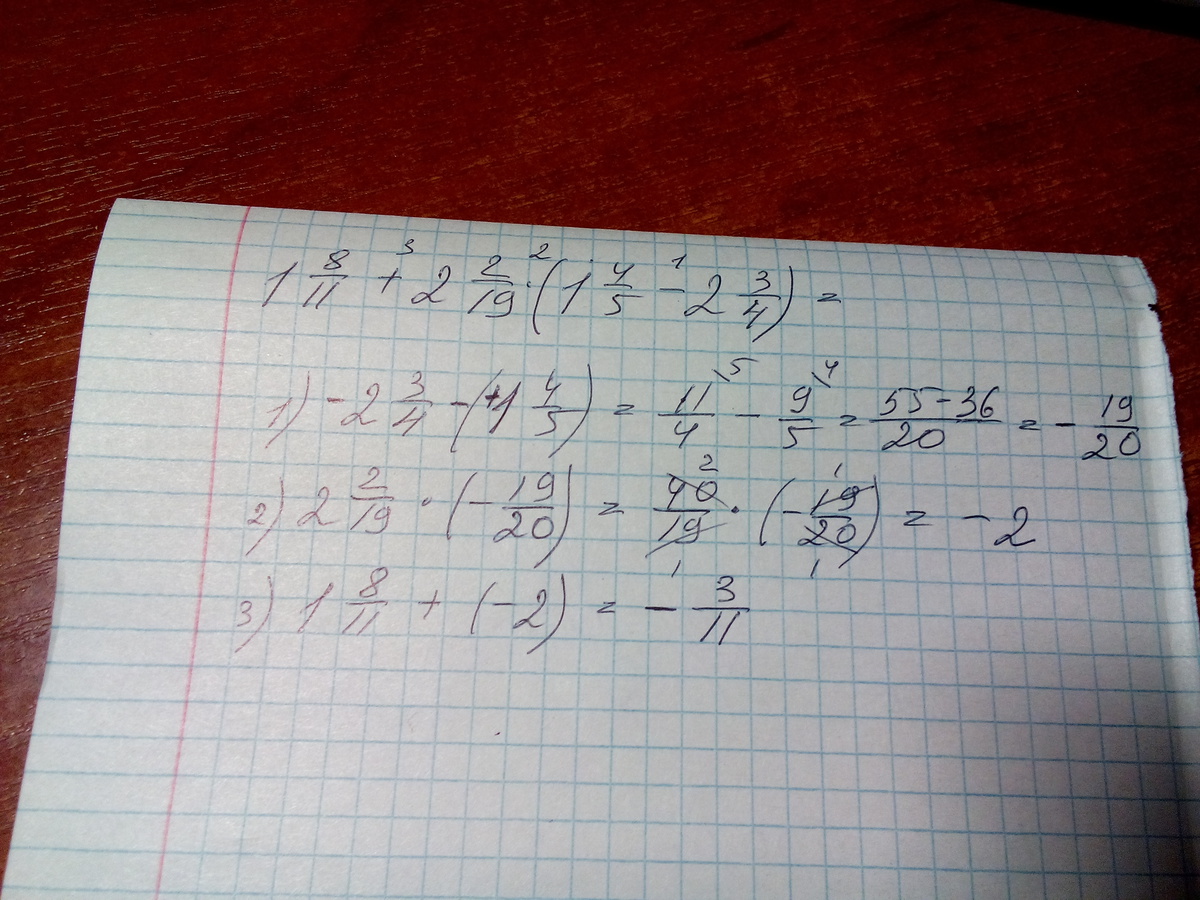 1 8/11 +³ 2 2/19 ·² (1 4/5 -¹ 2 3/4) =
1) -2 3/4 - (+1 4/5) = 11/4 \5 - 9/5 \4 = 55-36/20 = - 19/20
2) 2 2/19 · (- 19/20) = 40/19 2 1 · (- 19/20) 1 1 = -2
3) 1 8/11 + (-2) = - 3/11